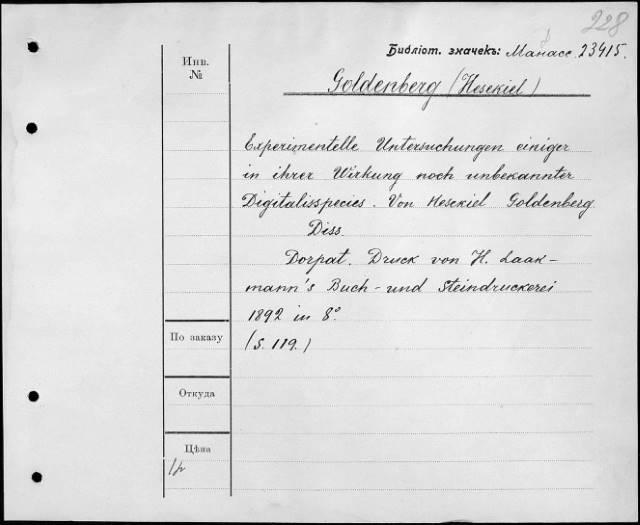 228
Библіот. значекъ: Манасс. 23415.
Инв.
№
Goldenberg (Hesekiel)
Experimentelle Untersuchungen einiger
in ihrer Wirkung noch unbekannter
Digitalisspecies. Von Hesekiel Goldenberg.
Diss.
Dorpat. Druck von H. Laak-
mann's Buch- und Steindruckerei
1892 in 8°.
(S. 119.)
По заказу
Откуда
Цѣна
1р